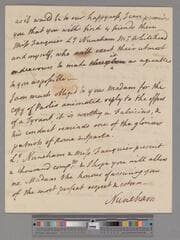 as it would be to our happyness, I can promise
you that you will find as friends there
Miss Fauquier Ld Nuneham Mr Whitehead
and myself, who will exert their utmost
endeavours to make as agreable
to you as possible.
I am much obliged to you Madam for the
copy of Paolis animated reply to the offer
of a Tyrant, it is worthy a Fabricius, &
his conduct reminds one of the glorious
patriots of Rome & Sparta.
Ld Nuneham & Miss Fauquier present
a thousand compts & I hope you will allow
me Madam the honour of assuring you
of the most perfect respect & esteem
Nuneham